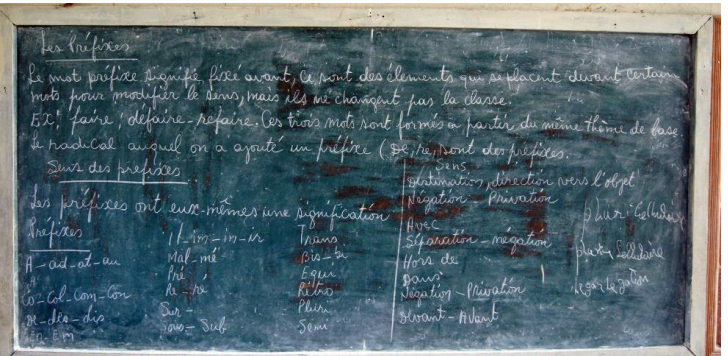 Les Préfixes
Le mot préfixe signifie fixé avant, Ce sont des élements qui se placent devant certain
mots pour modifier le sens, mais ils ne changent pas la classe.
EX: faire: défaire - refaire. Ces trois mots sont formés a partir du même thème de base.
le radical auquel on a ajouté un préfixe (De, re, sont des préfixes.
Sens des prefixes
Les préfixes ont eux-mêmes une signification
Préfixes
A - ad - at - au
A
Co - Col - Com - Con
De - des - dis
En - Em
Il - im - in - ir
Mal - mé
Pré
Re - ré
Sur -
Sous - Sub
Trans
Bis - bi
Equi
Rétro
Pluri
Semi
Sens
Destination, direction vers l'objet
Négation - Privation
Avec
Séparation - négation
Hors de
Dans
Négation - Privation
Devant - Avant
pluri